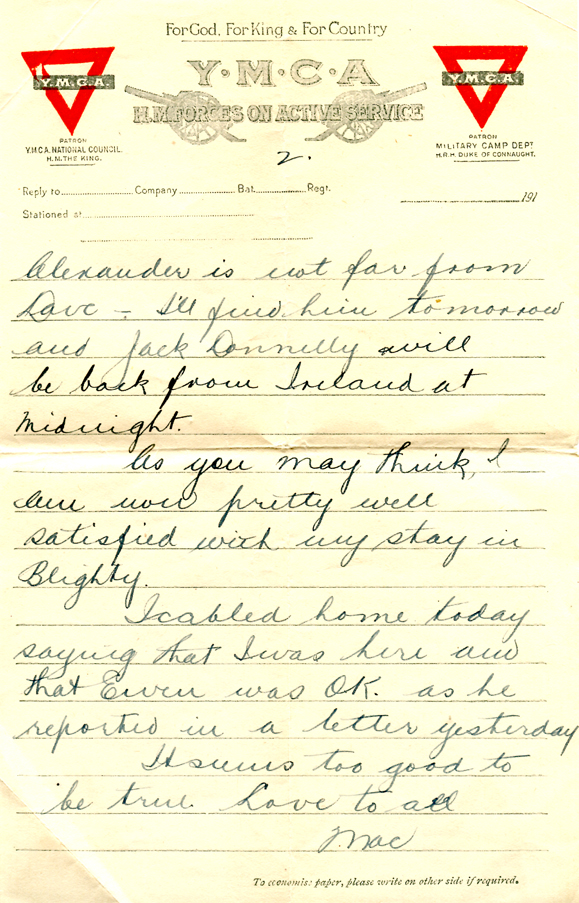 For God, For King & For Country
Y·M·C·A
H.M. FORCES ON ACTIVE SERVICE
Y.M.C.A.
PATRON
Y.M.C.A. NATIONAL COUNCIL.
H.M. THE KING.
Y.M.C.A.
PATRON
MILITARY CAMP DEPT
H.R.H DUKE OF CONNAUGHT.
2.
Reply to Company Bat. Regt.
191
Stationed at
Alexander is not far from
Dave - I'll find him tomorrow
and Jack Donnelly will
be back from Ireland at
midnight.
As you may think, I
am now pretty well
satisfied with my stay in
Blighty.
I cabled home today
saying that I was here and
that Ewen was OK. as he
reported in a letter yesterday
It seems too good to
be true. Love to all
Mac
To economise paper, please write on other side if required.